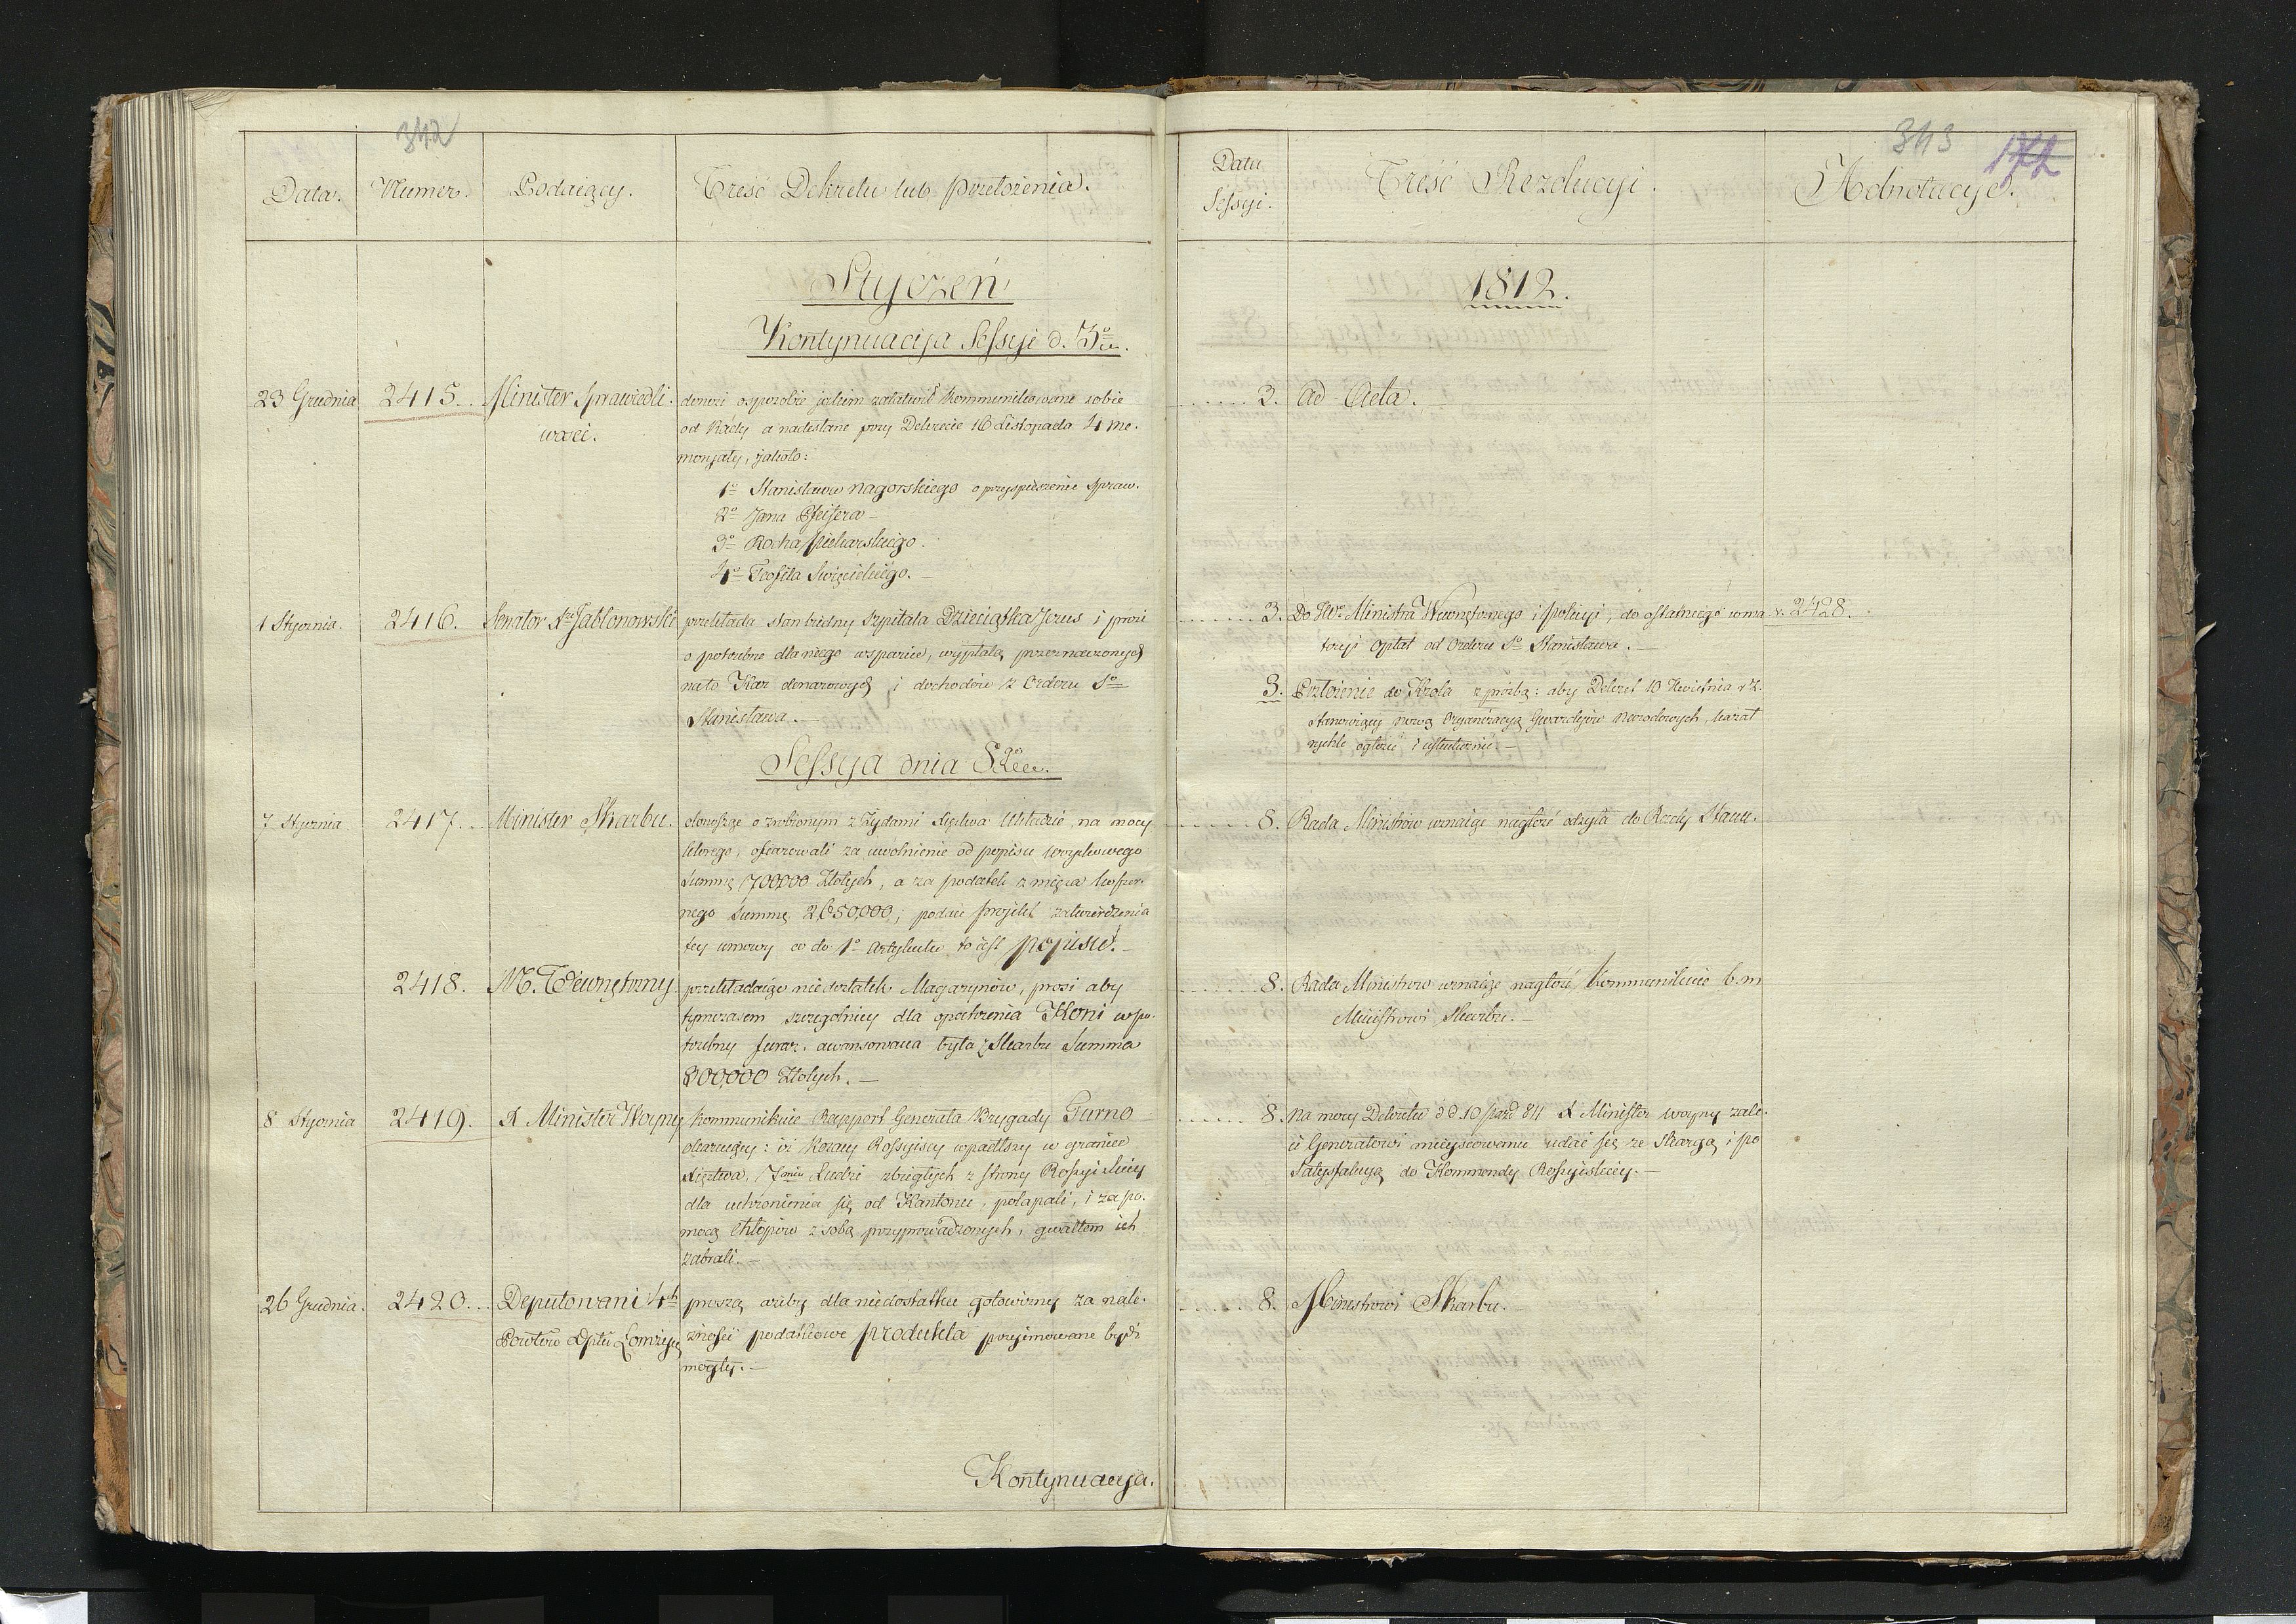 342
Data. Numer. Podaiący. Treść Dekretu lub Przełożenia.
Styczeń
Kontynuacija Sessyi d. 3º
23 Grudnia 2415. Minister Sprawiedli-
wości.
donosi o sposobie jakim załatwił kommunikowane sobie
od Rady a nadesłane przy Dekrecie 16 Listopada 4 me-
moryały, jakoto:
1º Stanisława Nagorskiego o przyspieszenie spraw.
2º Jana Pfeifera –
3º Rocha Piekarskiego.
4º Teofila Swięcickiego. –
1 Stycznia. 2416. Senator Xże Jabłonowski
przekłada stan biedny szpitala Dzieciątka Jezus i prosi
o potrzebne dla niego wsparcie, wypłatą przeznaczonych
na to Kar donarowych i dochodów z Orderu Sº
Stanisława. –
Sessya dnia 8go
7 Stycznia 2417. Minister Skarbu.
donosząc o zrobionym z Żydami Xięstwa Układzie, na mocy
którego, ofiarowali za uwolnienie od popisu woyskowego
Summę 700000 Złotych, a za podatek z mięsa koszer-
nego Summę 2,650,000; podaie projekt zatwierdzenia
tey umowy co do 1º Artykułu to iest popisu. –
2418. M. Wewnętrzny.
przekładaiąc niedostatek Magazynów, prosi aby
tymczasem szczególniey dla opatrzenia Koni w po-
trzebny furaż, awansowana była z Skarbu Summa
800,000 Złotych. –
8 Stycznia 2419. X Minister Woyny
kommunikuie Rapport Generała Brygady Turno
okazuiący: iż Kozacy Rossyiscy wpadłszy w granice
Xięstwa, 7miu Ludzi zbiegłych z strony Rossyiskiey
dla uchronienia się od Kantonu, połapali, i za po-
mocą Chłopów z sobą przyprowadzonych, gwałtem ich
zabrali. –
26 Grudnia. 2420. Deputowani 4ch
Powiatów Dptu Łomżyń
proszą ażeby dla niedostatku gotowizny za nale-
żności podatkowe produkta przyimowane bydź
mogły. –
Kontynuacya.
343 172
Data
Sessyi. Treść Rezolucyi. Adnotacye.
1812.
3. Ad Acta.
3. Do Wo Ministra Wewnętrznego i Policyi, do ostatniego wzma v. 2428.
opłat od Orderu Sº Stanisława. –
3. Przełożenie do Króla z prośbą: aby Dekret 10 Kwietnia r. z.
stanowiący nową Organizacyą Gwardyów Narodowych, kazał
rychło ogłosić i uskutecznić –
8. Rada Ministrów uznaiąc nagłość odsyła do Rady Stanu.
8. Rada Ministrów uznaiąc nagłość Kommunikuie b. m
Ministrowi Skarbu. –
8. Na mocy Dekretu d d. 10 paźd 811 X Minister woyny zale-
ci Generałowi mieyscowemu udać się ze skargą i po
Satysfakcyą do Kommendy Rossyiskiey. –
8. Ministrowi Skarbu.